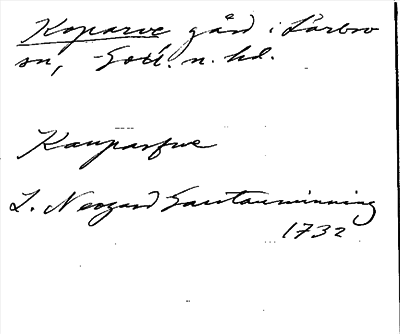 Koparve gård i Lärbro
sn, Gotl. n. hd.
Kauparfue
L. Neogard Gautauminning
1732